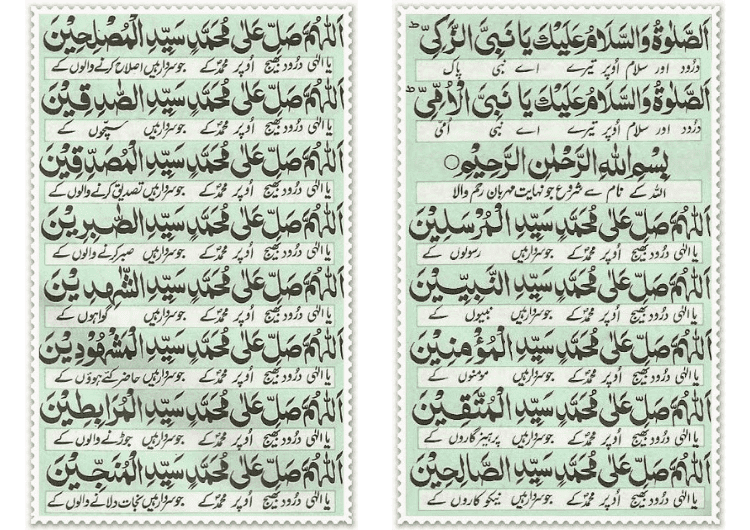 اَلصَّلٰوةُ وَالسَّلَامُ عَلَيْكَ يَا نَبِيَّ الزَّكِيِّ ؕ
درُود اور سلام اُوپر تیرے اے نبی پاک
اَلصَّلٰوةُ وَالسَّلَامُ عَلَيْكَ يَا نَبِيَّ الْاُمِّيِّ ؕ
درُود اور سلام اُوپر تیرے اے نبی اُمّی
بِسْمِ اللهِ الرَّحْمٰنِ الرَّحِيْمِ ○
اللہ کے نام سے شروع جو نہایت مہربان رحم والا
اَللّٰهُمَّ صَلِّ عَلٰى مُحَمَّدٍ سَيِّدِ الْمُرْسَلِيْنَ
یا الٰہی درُود بھیج اُوپر محمدؐ کے جو سردار ہیں رسولوں کے
اَللّٰهُمَّ صَلِّ عَلٰى مُحَمَّدٍ سَيِّدِ النَّبِيّٖنَ
یا الٰہی درُود بھیج اُوپر محمدؐ کے جو سردار ہیں نبیوں کے
اَللّٰهُمَّ صَلِّ عَلٰى مُحَمَّدٍ سَيِّدِ الْمُؤْمِنِيْنَ
یا الٰہی درُود بھیج اُوپر محمدؐ کے جو سردار ہیں مومنوں کے
اَللّٰهُمَّ صَلِّ عَلٰى مُحَمَّدٍ سَيِّدِ الْمُتَّقِيْنَ
یا الٰہی درُود بھیج اُوپر محمدؐ کے جو سردار ہیں پرہیزگاروں کے
اَللّٰهُمَّ صَلِّ عَلٰى مُحَمَّدٍ سَيِّدِ الصَّالِحِيْنَ
یا الٰہی درُود بھیج اُوپر محمدؐ کے جو سردار ہیں نیکو کاروں کے
اَللّٰهُمَّ صَلِّ عَلٰى مُحَمَّدٍ سَيِّدِ الْمُصْلِحِيْنَ
یا الٰہی درُود بھیج اُوپر محمدؐ کے جو سردار ہیں اصلاح کرنے والوں کے
اَللّٰهُمَّ صَلِّ عَلٰى مُحَمَّدٍ سَيِّدِ الصّٰدِقِيْنَ
یا الٰہی درُود بھیج اُوپر محمدؐ کے جو سردار ہیں سچّوں کے
اَللّٰهُمَّ صَلِّ عَلٰى مُحَمَّدٍ سَيِّدِ الْمُصَدِّقِيْنَ
یا الٰہی درُود بھیج اُوپر محمدؐ کے جو سردار ہیں تصدیق کرنے والوں کے
اَللّٰهُمَّ صَلِّ عَلٰى مُحَمَّدٍ سَيِّدِ الصّٰبِرِيْنَ
یا الٰہی درُود بھیج اُوپر محمدؐ کے جو سردار ہیں صبر کرنے والوں کے
اَللّٰهُمَّ صَلِّ عَلٰى مُحَمَّدٍ سَيِّدِ الشّٰهِدِيْنَ
یا الٰہی درُود بھیج اُوپر محمدؐ کے جو سردار ہیں گواہوں کے
اَللّٰهُمَّ صَلِّ عَلٰى مُحَمَّدٍ سَيِّدِ الْمَشْهُوْدِيْنَ
یا الٰہی درُود بھیج اُوپر محمدؐ کے جو سردار ہیں حاضر کئے ہوؤں کے
اَللّٰهُمَّ صَلِّ عَلٰى مُحَمَّدٍ سَيِّدِ الْمُرَابِطِيْنَ
یا الٰہی درُود بھیج اُوپر محمدؐ کے جو سردار ہیں جوڑنے والوں کے
اَللّٰهُمَّ صَلِّ عَلٰى مُحَمَّدٍ سَيِّدِ الْمُنَجِّيْنَ
یا الٰہی درُود بھیج اُوپر محمدؐ کے جو سردار ہیں نجات دلانے والوں کے